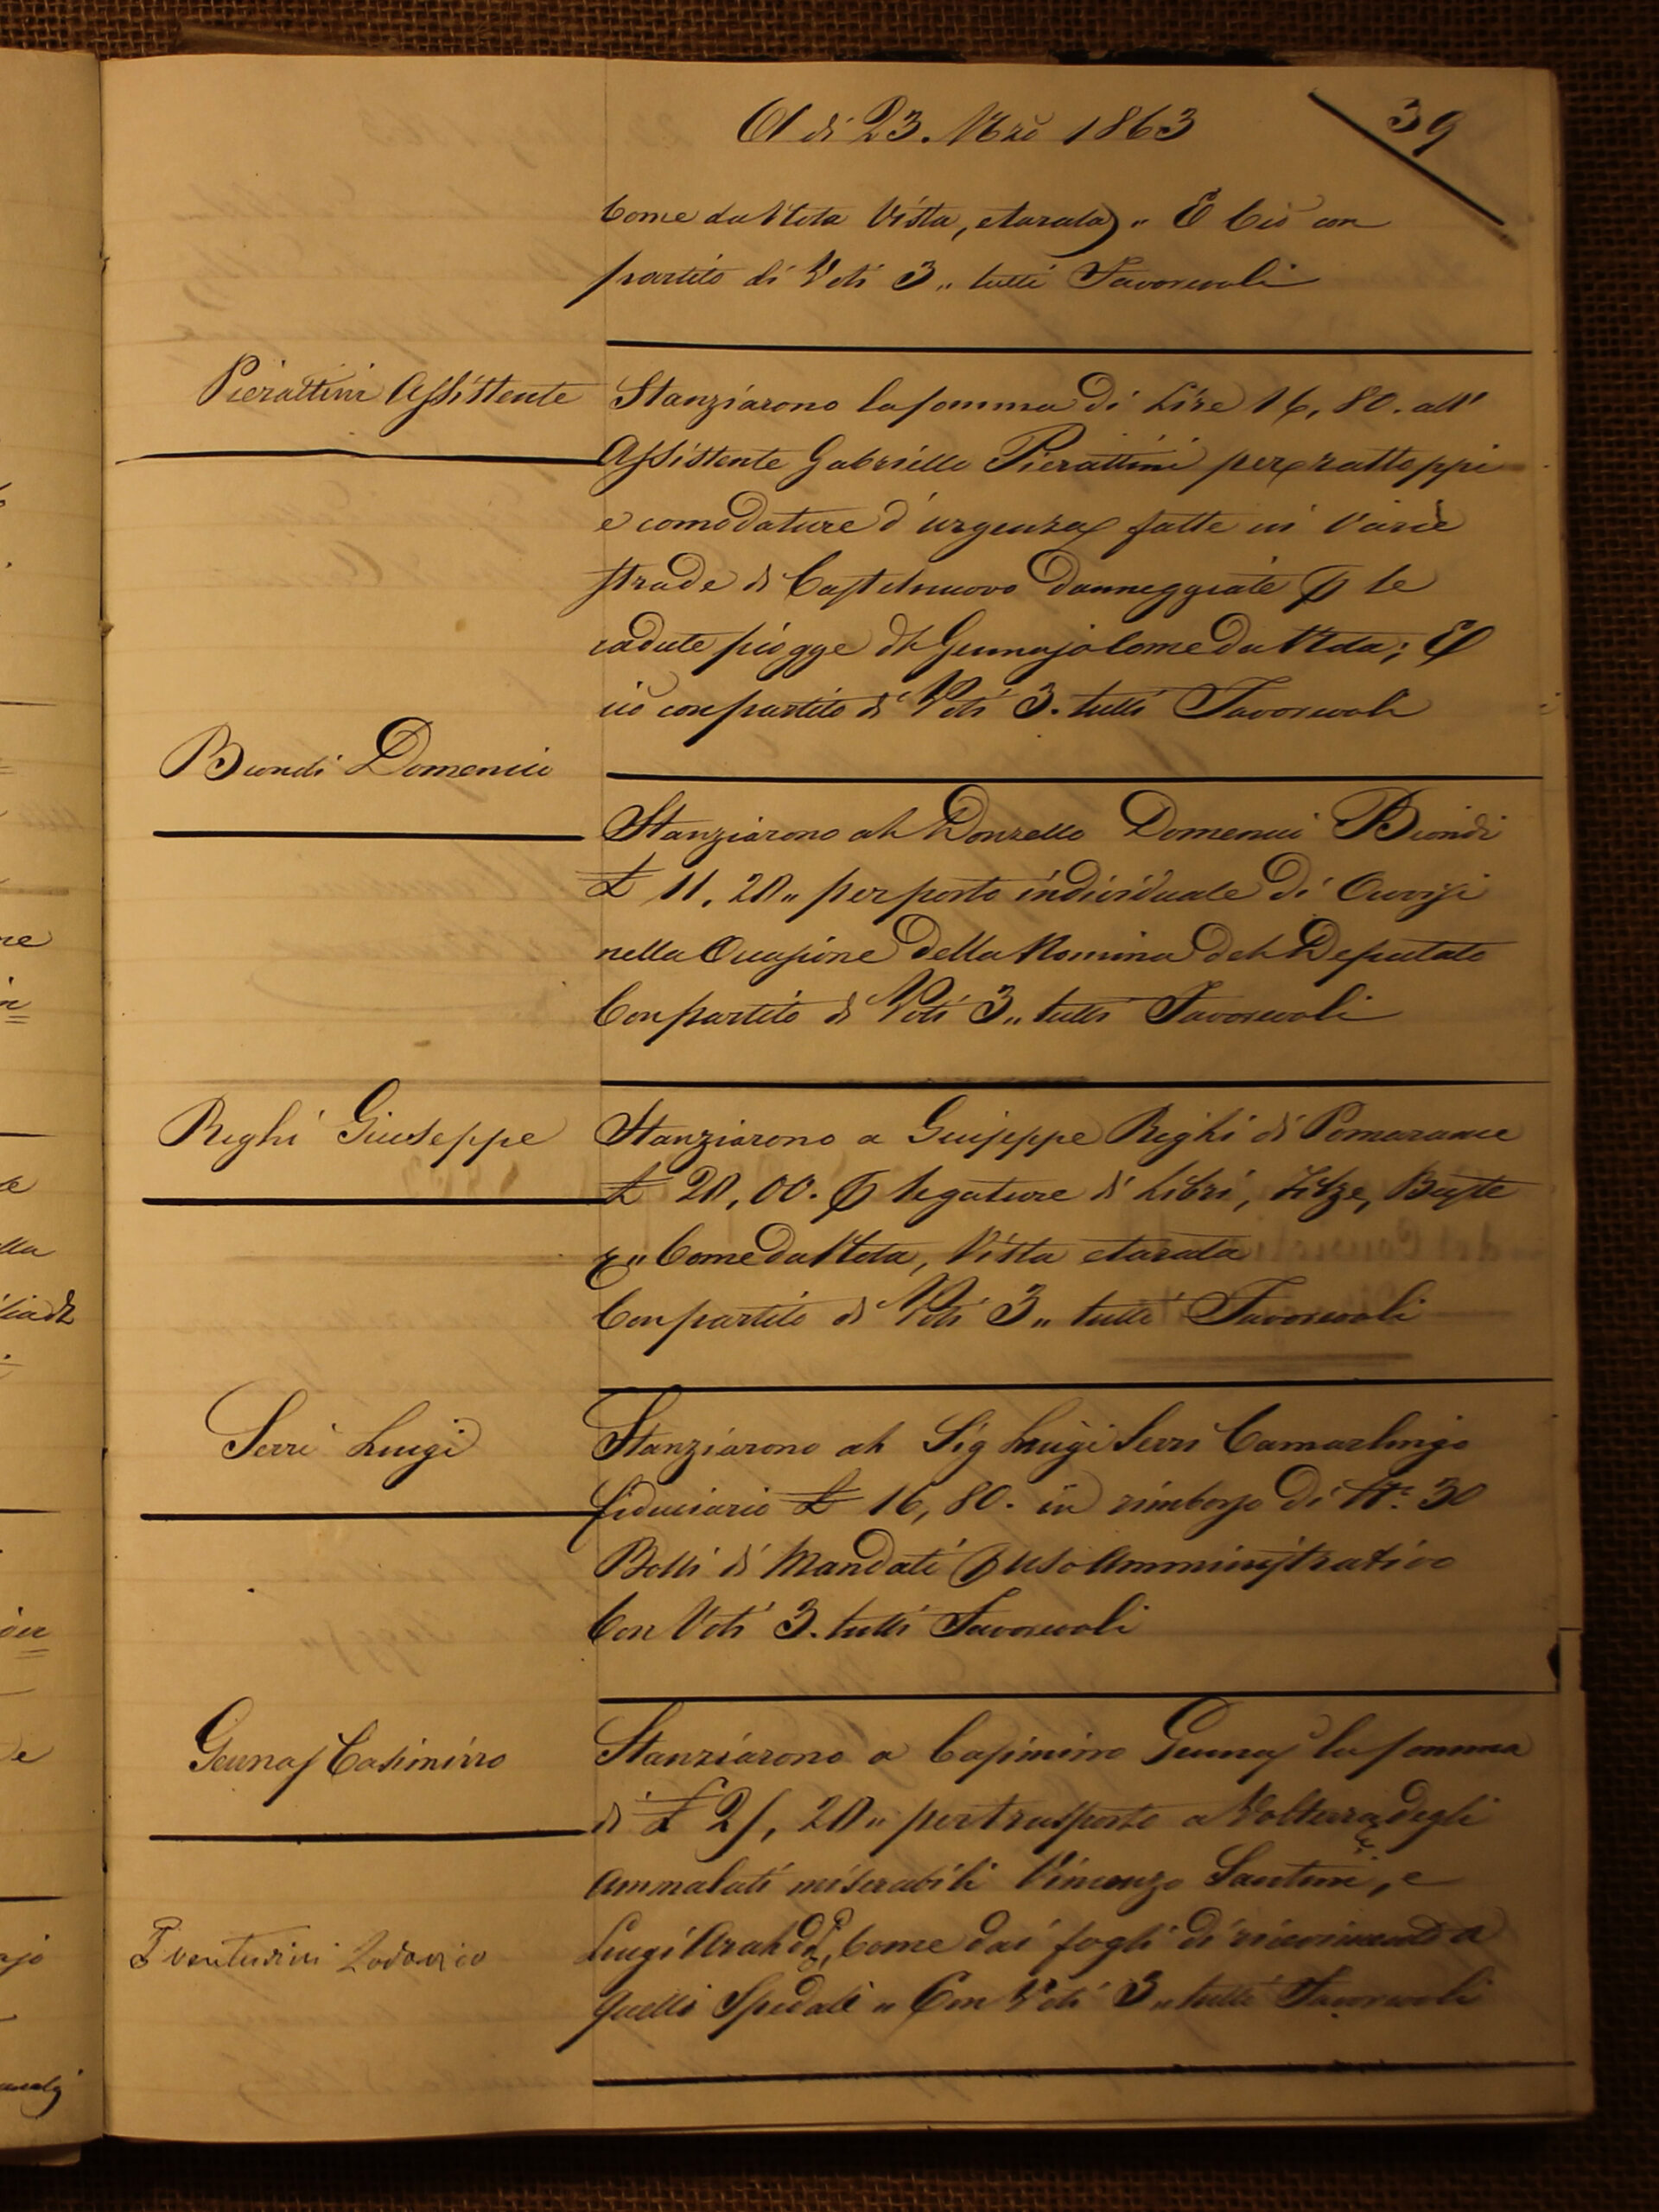 A di 23. Mzo 1863
39
Come da Nota Vista, e tarata) „ E Ciò con
partito di Voti 3„ tutti Favorevoli
Pierattini Assistente
Stanziarono la somma di Lire 16,80. all'
Assistente Gabriello Pierattini per rattoppi
e comodature d'urgenza fatte in Varie
strade di Castelnuovo danneggiate p le
cadute piogge di Gennajo Come da Nota; E
ciò con partito di Voti 3. tutti Favorevoli
Biondi Domenico
Stanziarono al Donzello Domenici Biondi
£ 11,20„ per porto individuale di Avvisi
nella Occasione della Nomina del Deputato
Con partito di Voti 3„ tutti Favorevoli
Righi Giuseppe
Stanziarono a Giuseppe Righi di Pomarance
£ 20,00. p legature di Libri, Filze, Buste
Come da Nota, Vista e tarata
Con partito di Voti 3„ tutti Favorevoli
Serri Luigi
Stanziarono al Sig Luigi Serri Camarlingo
fiduciario £ 16,80. in rimborso di N.° 30
Bolli di Mandati p uso Amministrativo
Con Voti 3. tutti Favorevoli
Casimirro
Stanziarono a Casimirro la somma
di £ 25,20„ per trasporto a Volterra degli
ammalati miserabili Vincenzo Santini, e
Luigi Come dai fogli di ricevimento a
quello Spedale „ Con Voti 3„ tutti Favorevoli
Venturini Lodovico